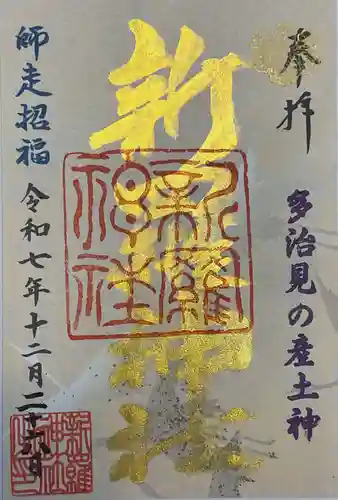 奉拝
多治見の産土神
新羅神社
新羅
神社
師走招福
令和七年十二月二十六日
新羅
神社